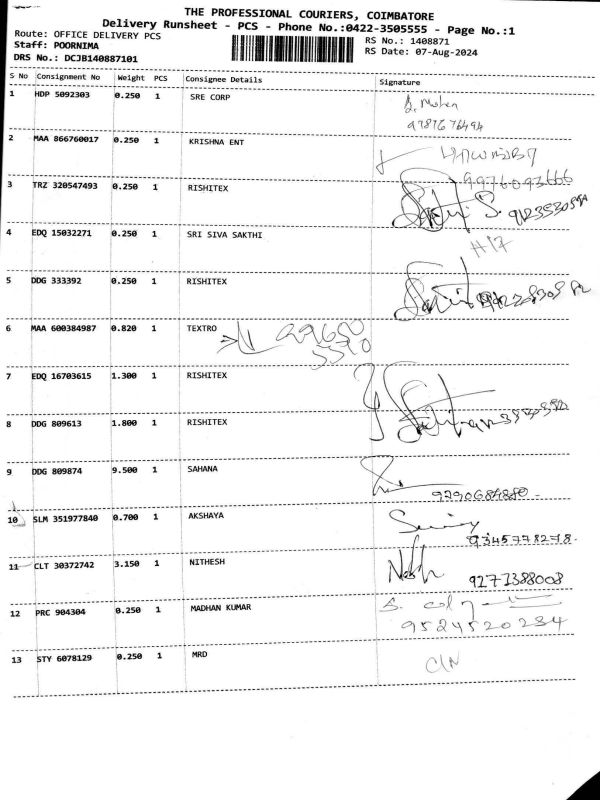 THE PROFESSIONAL COURIERS, COIMBATORE
Delivery Runsheet - PCS - Phone No.:0422-3505555 - Page No.:1
Route: OFFICE DELIVERY PCS
RS No.: 1408871
Staff: POORNIMA
RS Date: 07-Aug-2024
DRS No.: DCJB140887101
S No Consignment No Weight PCS Consignee Details Signature
1 HDP 5092303 0.250 1 SRE CORP
2 MAA 866760017 0.250 1 KRISHNA ENT
9976093666
3 TRZ 320547493 0.250 1 RISHITEX
4 EDQ 15032271 0.250 1 SRI SIVA SAKTHI
5 DDG 333392 0.250 1 RISHITEX
6 MAA 600384987 0.820 1 TEXTRO
7 EDQ 16703615 1.300 1 RISHITEX
8 DDG 809613 1.800 1 RISHITEX
9 DDG 809874 9.500 1 SAHANA
10 SLM 351977840 0.700 1 AKSHAYA
9345778278.
11 CLT 30372742 3.150 1 NITHESH
12 PRC 904304 0.250 1 MADHAN KUMAR
9524520234
13 STY 6078129 0.250 1 MRD